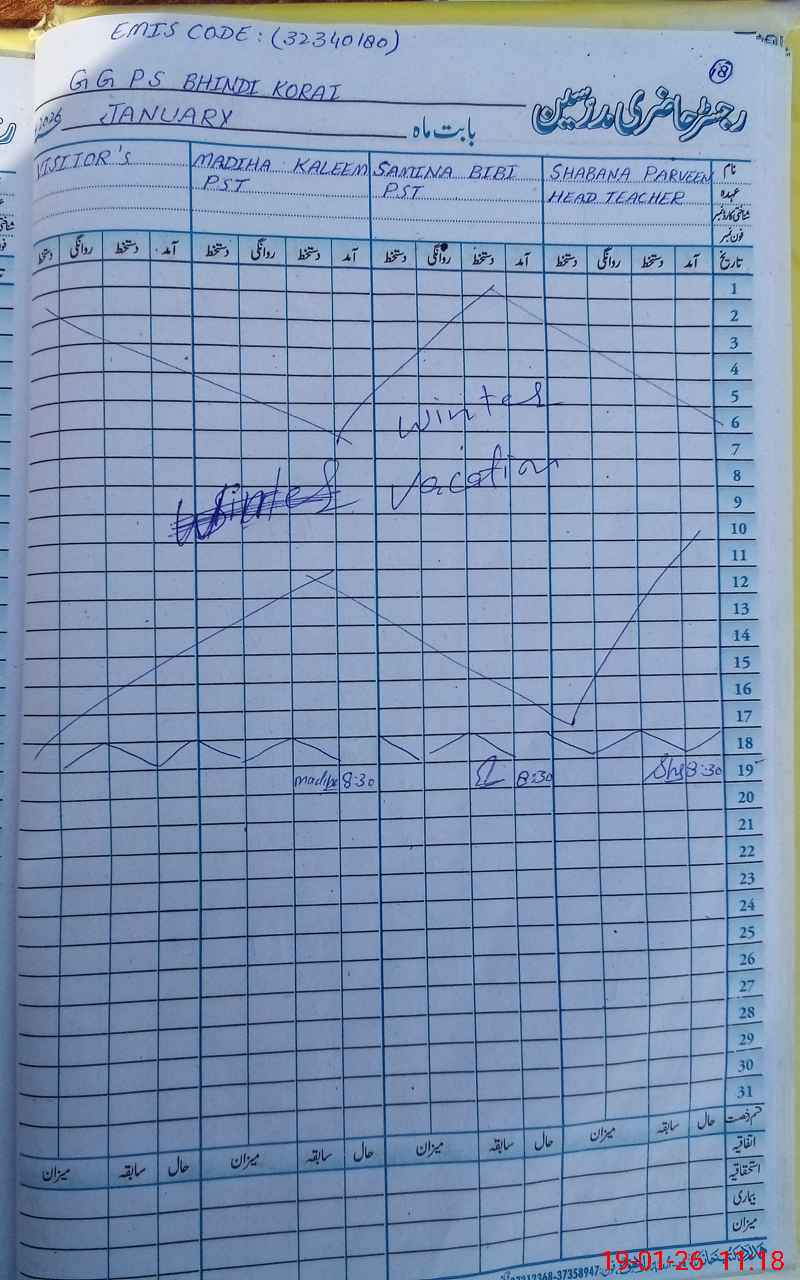 EMIS CODE: (32340180)
18
G G P S BHINDI KORAI
رجسٹر حاضری مدرسین
2026 JANUARY بابت ماہ
نام SHABANA PARVEEN SAMINA BIBI MADIHA KALEEM VISITOR'S
عہدہ HEAD TEACHER PST PST
شناختی کارڈ نمبر
فون نمبر
تاریخ آمد دستخط روانگی دستخط آمد دستخط روانگی دستخط آمد دستخط روانگی دستخط آمد دستخط روانگی دستخط
1
2
3
4
5
winter
6
7
8
vacation
9
10
11
12
13
14
15
16
17
18
19 8:30 Sha 8:30 8:30 madiha
20
21
22
23
24
25
26
27
28
29
30
31
قسم رخصت حال سابقہ میزان حال سابقہ میزان حال سابقہ میزان حال سابقہ میزان
اتفاقیہ
استحقاقیہ
بیماری
میزان
37212368-37358947
19.01.26 11.18